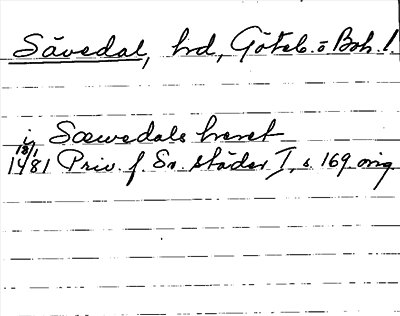 Sävedal, hd, Göteb. o Boh. l.
i Sæwedals heret
18/1
1481 Priv. f. Sv. städer I, s. 169. orig.